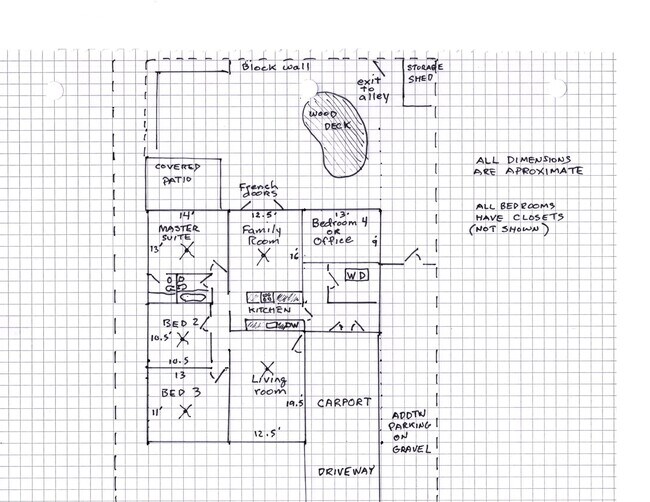 Block wall
STORAGE
SHED
exit
to
alley
WOOD
DECK
ALL DIMENSIONS
ARE APROXIMATE
COVERED
PATIO
ALL BEDROOMS
HAVE CLOSETS
(NOT SHOWN)
French
doors
14'
MASTER
SUITE
13'
12.5'
Family
Room
16'
13'
Bedroom 4
OR
Office
9'
W D
KITCHEN
DW
BED 2
10.5'
10.5
13
BED 3
11'
Living
room
19.5'
12.5'
CARPORT
ADDTN
PARKING
ON
GRAVEL
DRIVEWAY